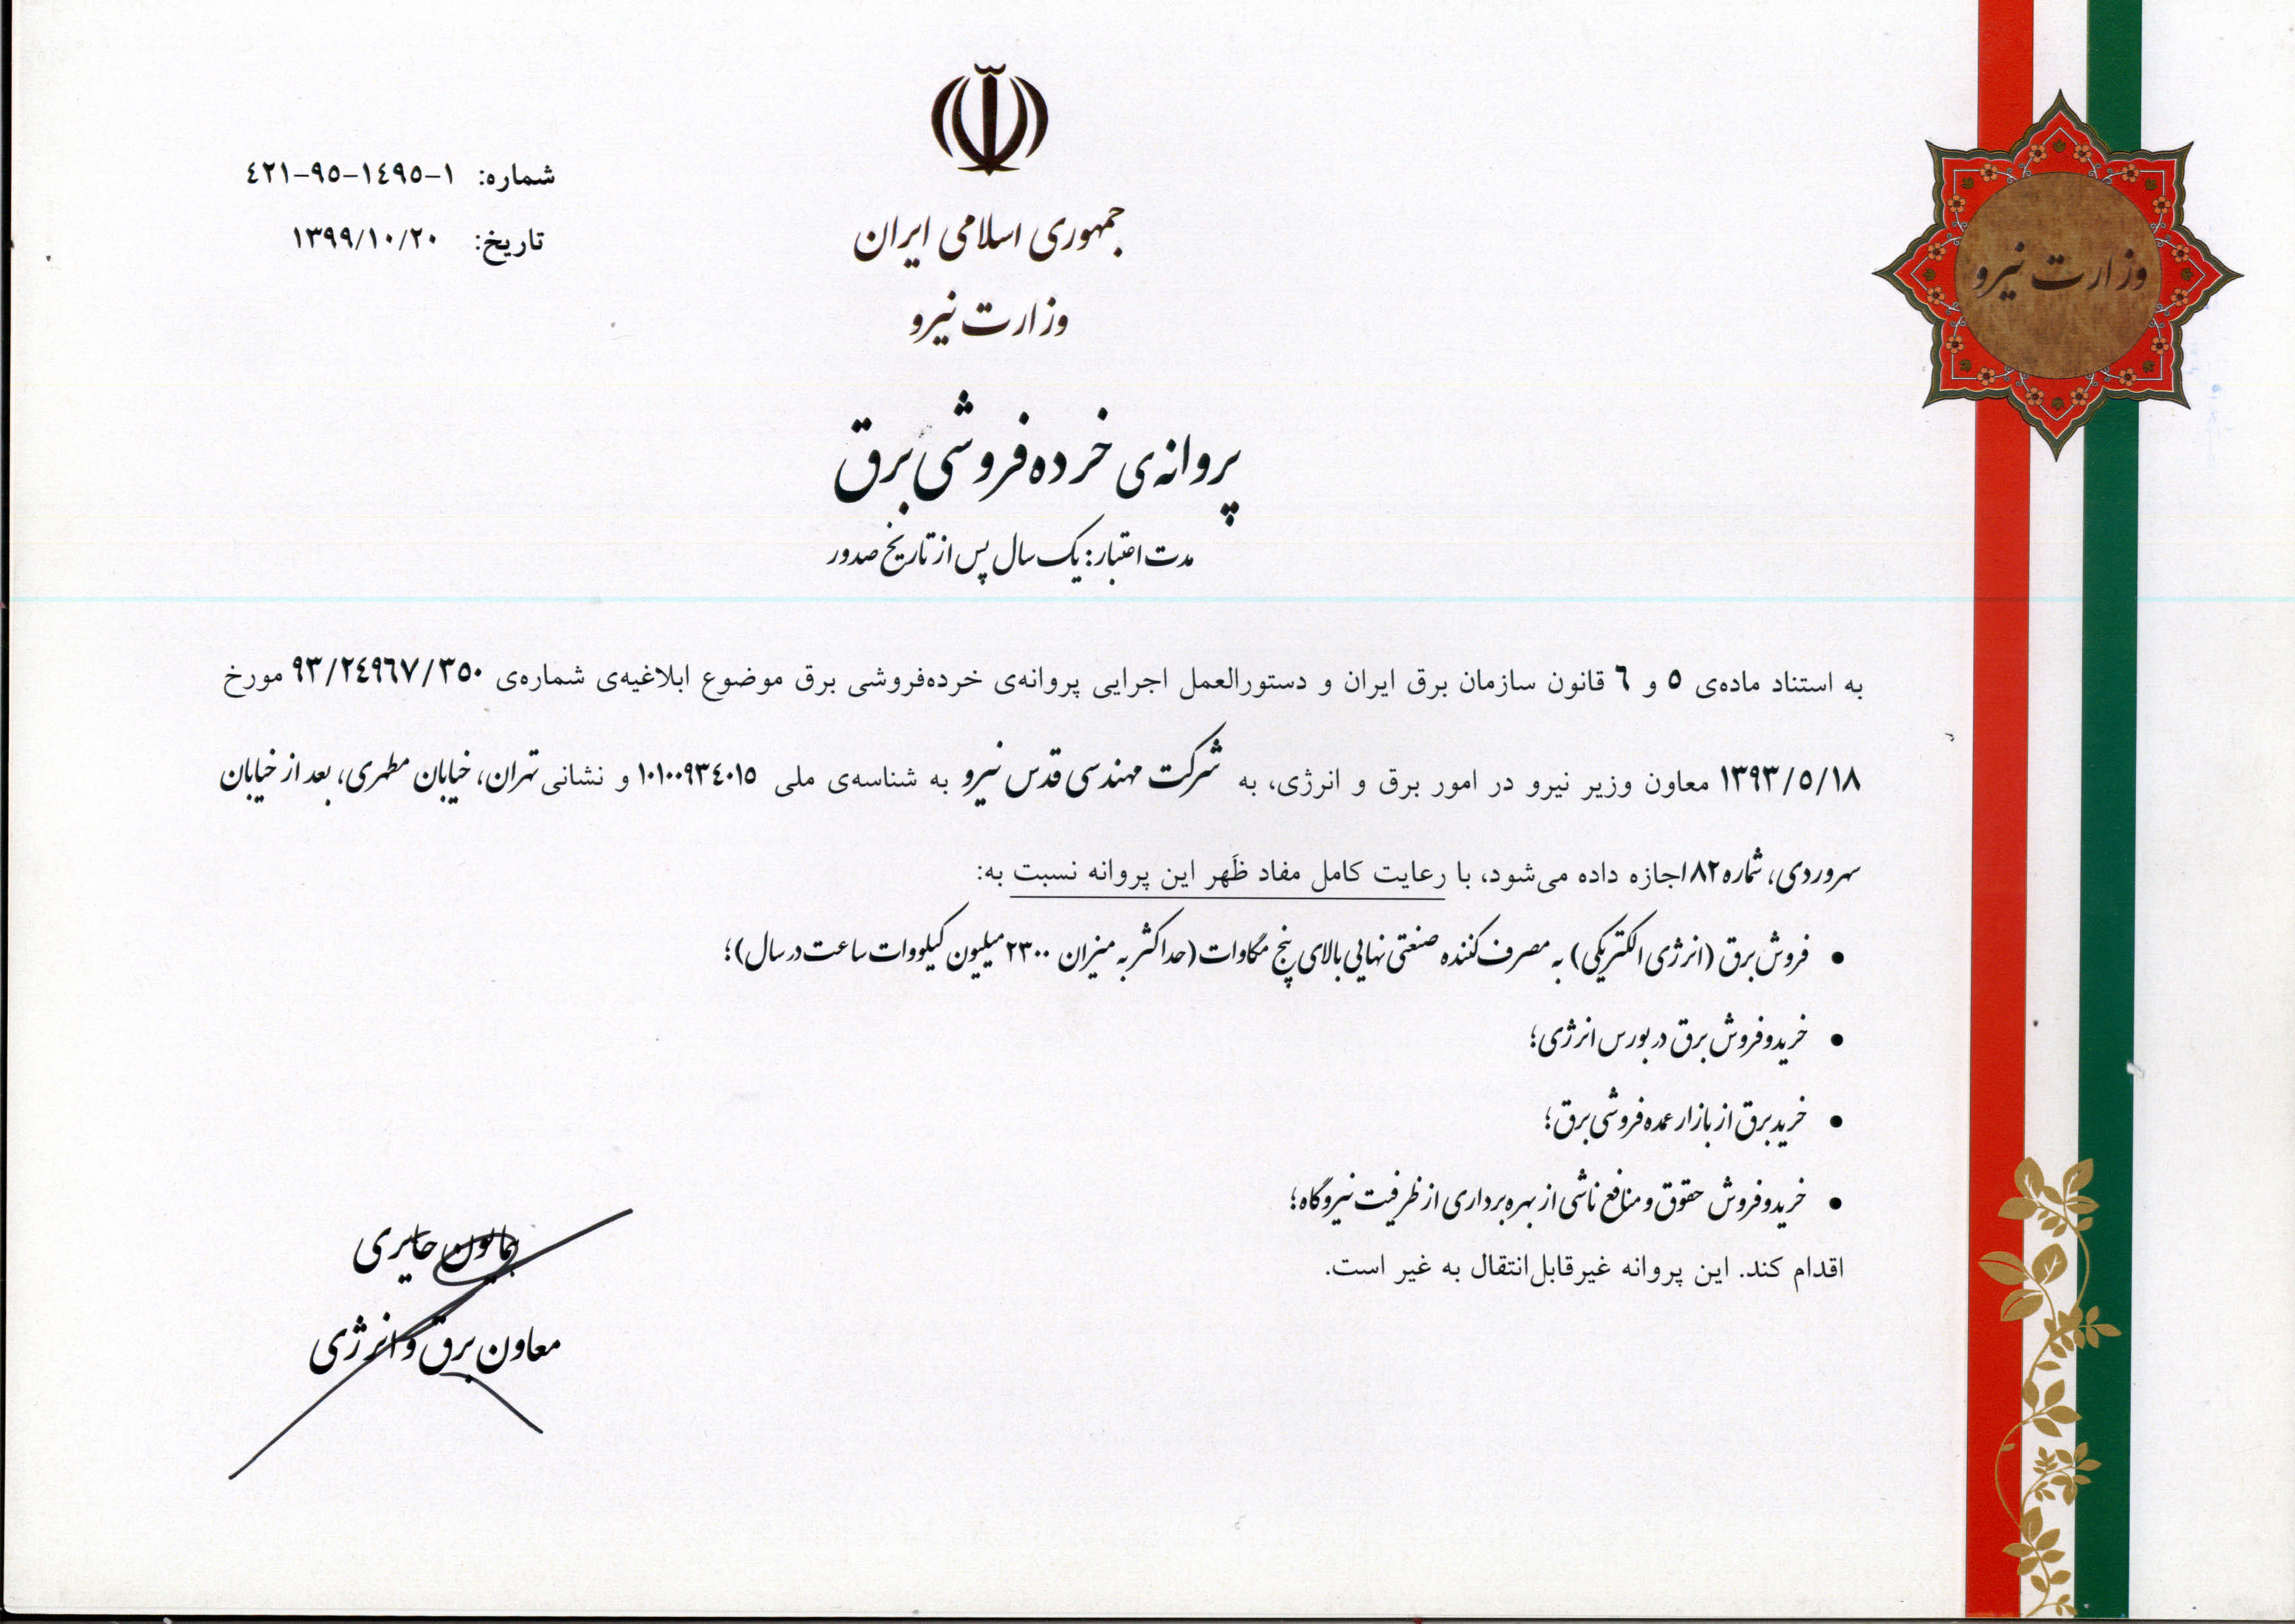 شماره: ۱-۱۴۹۵-۹۵-۴۲۱
تاریخ: ۱۳۹۹/۱۰/۲۰
جمهوری اسلامی ایران
وزارت نیرو
وزارت نیرو
پروانه‌ی خرده‌فروشی برق
مدت اعتبار: یک سال پس از تاریخ صدور
به استناد ماده‌ی ۵ و ۶ قانون سازمان برق ایران و دستورالعمل اجرایی پروانه‌ی خرده‌فروشی برق موضوع ابلاغیه‌ی شماره‌ی ۹۳/۲۴۹۶۷/۳۵۰ مورخ
۱۳۹۳/۵/۱۸ معاون وزیر نیرو در امور برق و انرژی، به شرکت مهندسی قدس نیرو به شناسه‌ی ملی ۱۰۱۰۰۹۳۴۰۱۵ و نشانی تهران، خیابان مطهری، بعد از خیابان
سهروردی، شماره ۸۲ اجازه داده می‌شود، با رعایت کامل مفاد ظَهر این پروانه نسبت به:
• فروش برق (انرژی الکتریکی) به مصرف‌کننده صنعتی نهایی بالای پنج مگاوات (حداکثر به میزان ۲۳۰۰ میلیون کیلووات ساعت در سال)؛
• خرید و فروش برق در بورس انرژی؛
• خرید برق از بازار عمده‌فروشی برق؛
• خرید و فروش حقوق و منافع ناشی از بهره‌برداری از ظرفیت نیروگاه؛
اقدام کند. این پروانه غیرقابل‌انتقال به غیر است.
همایون حایری
معاون برق و انرژی